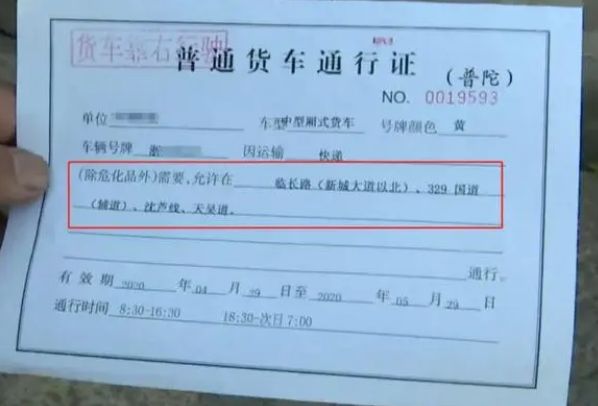 货车靠右行驶
普通货车通行证
(普陀)
NO. 0019593
单位 车型 中型厢式货车 号牌颜色 黄
车辆号牌 浙 因运输 快递
(除危化品外)需要,允许在 临长路(新城大道以北)、329 国道
(辅道)、沈芦线、天吴道。
通行。
有效期 2020 年 04 月 29 日至 2020 年 05 月 29 日
通行时间 8:30-16:30 18:30-次日7:00